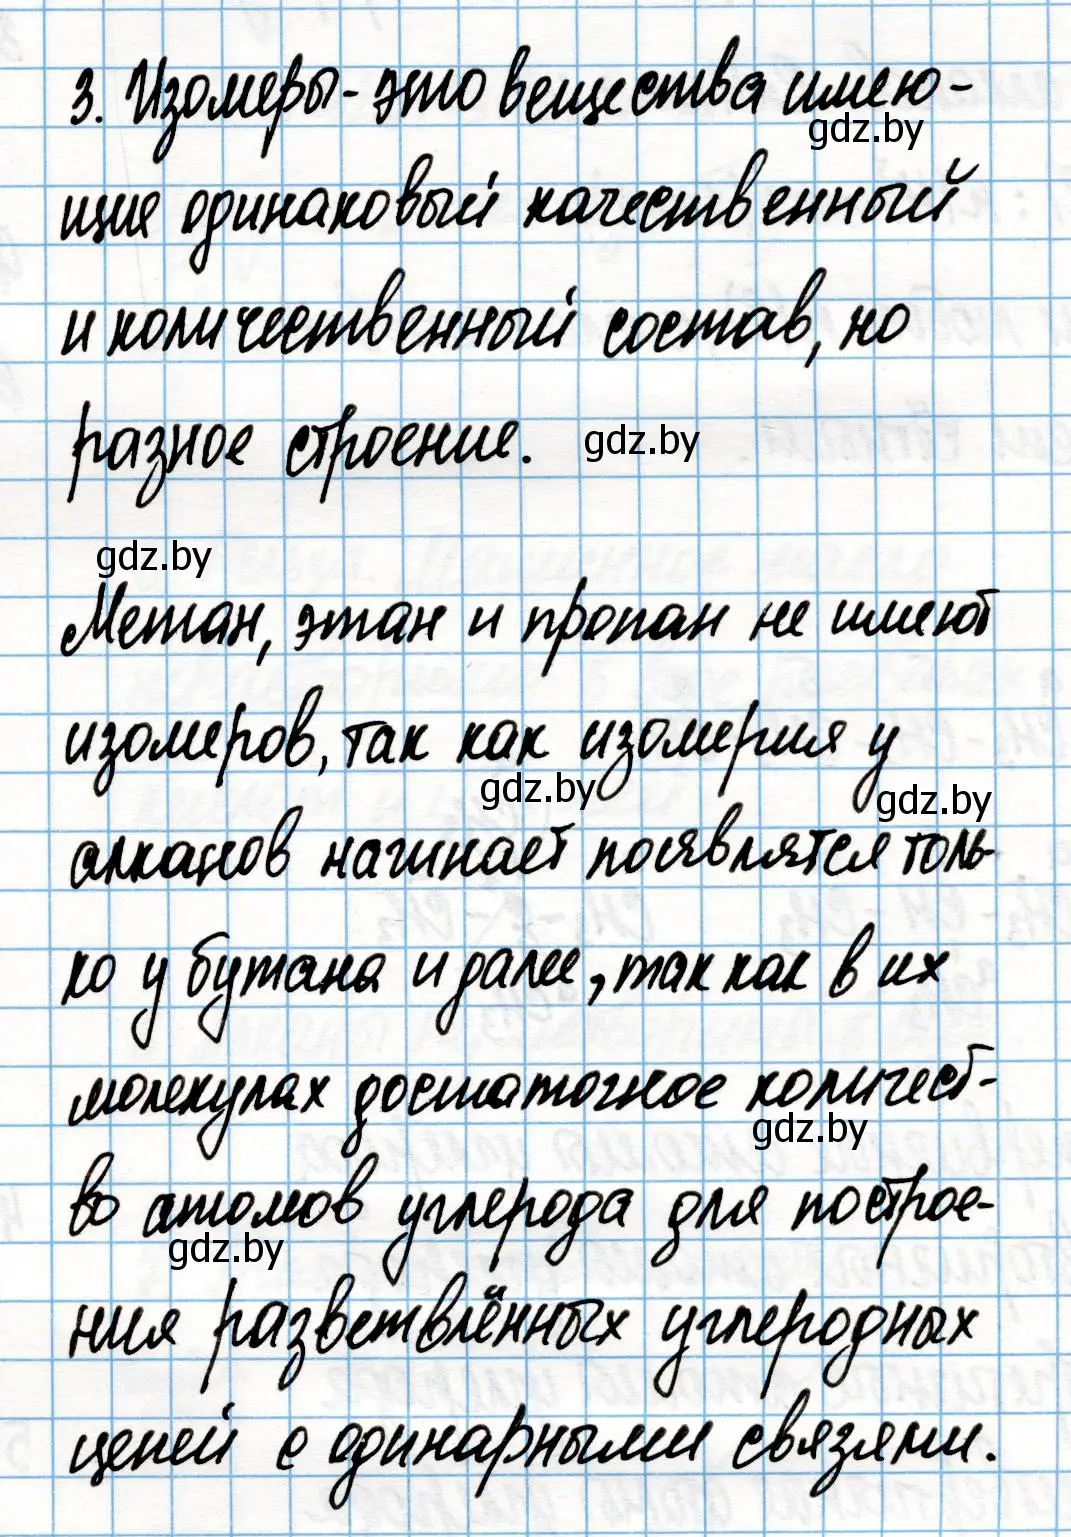 3. Изомеры - это вещества имею-
gdz.by
щие одинаковый качественный
и количественный состав, но
разное строение.
gdz.by
gdz.by
Метан, этан и пропан не имеют
изомеров, так как изомерия у
gdz.by
gdz.by
алканов начинает появлятся толь-
ко у бутана и далее, так как в их
молекулах достаточное количест-
gdz.by
во атомов углерода для построе-
gdz.by
ния разветвлённых углеродных
цепей с одинарными связями.